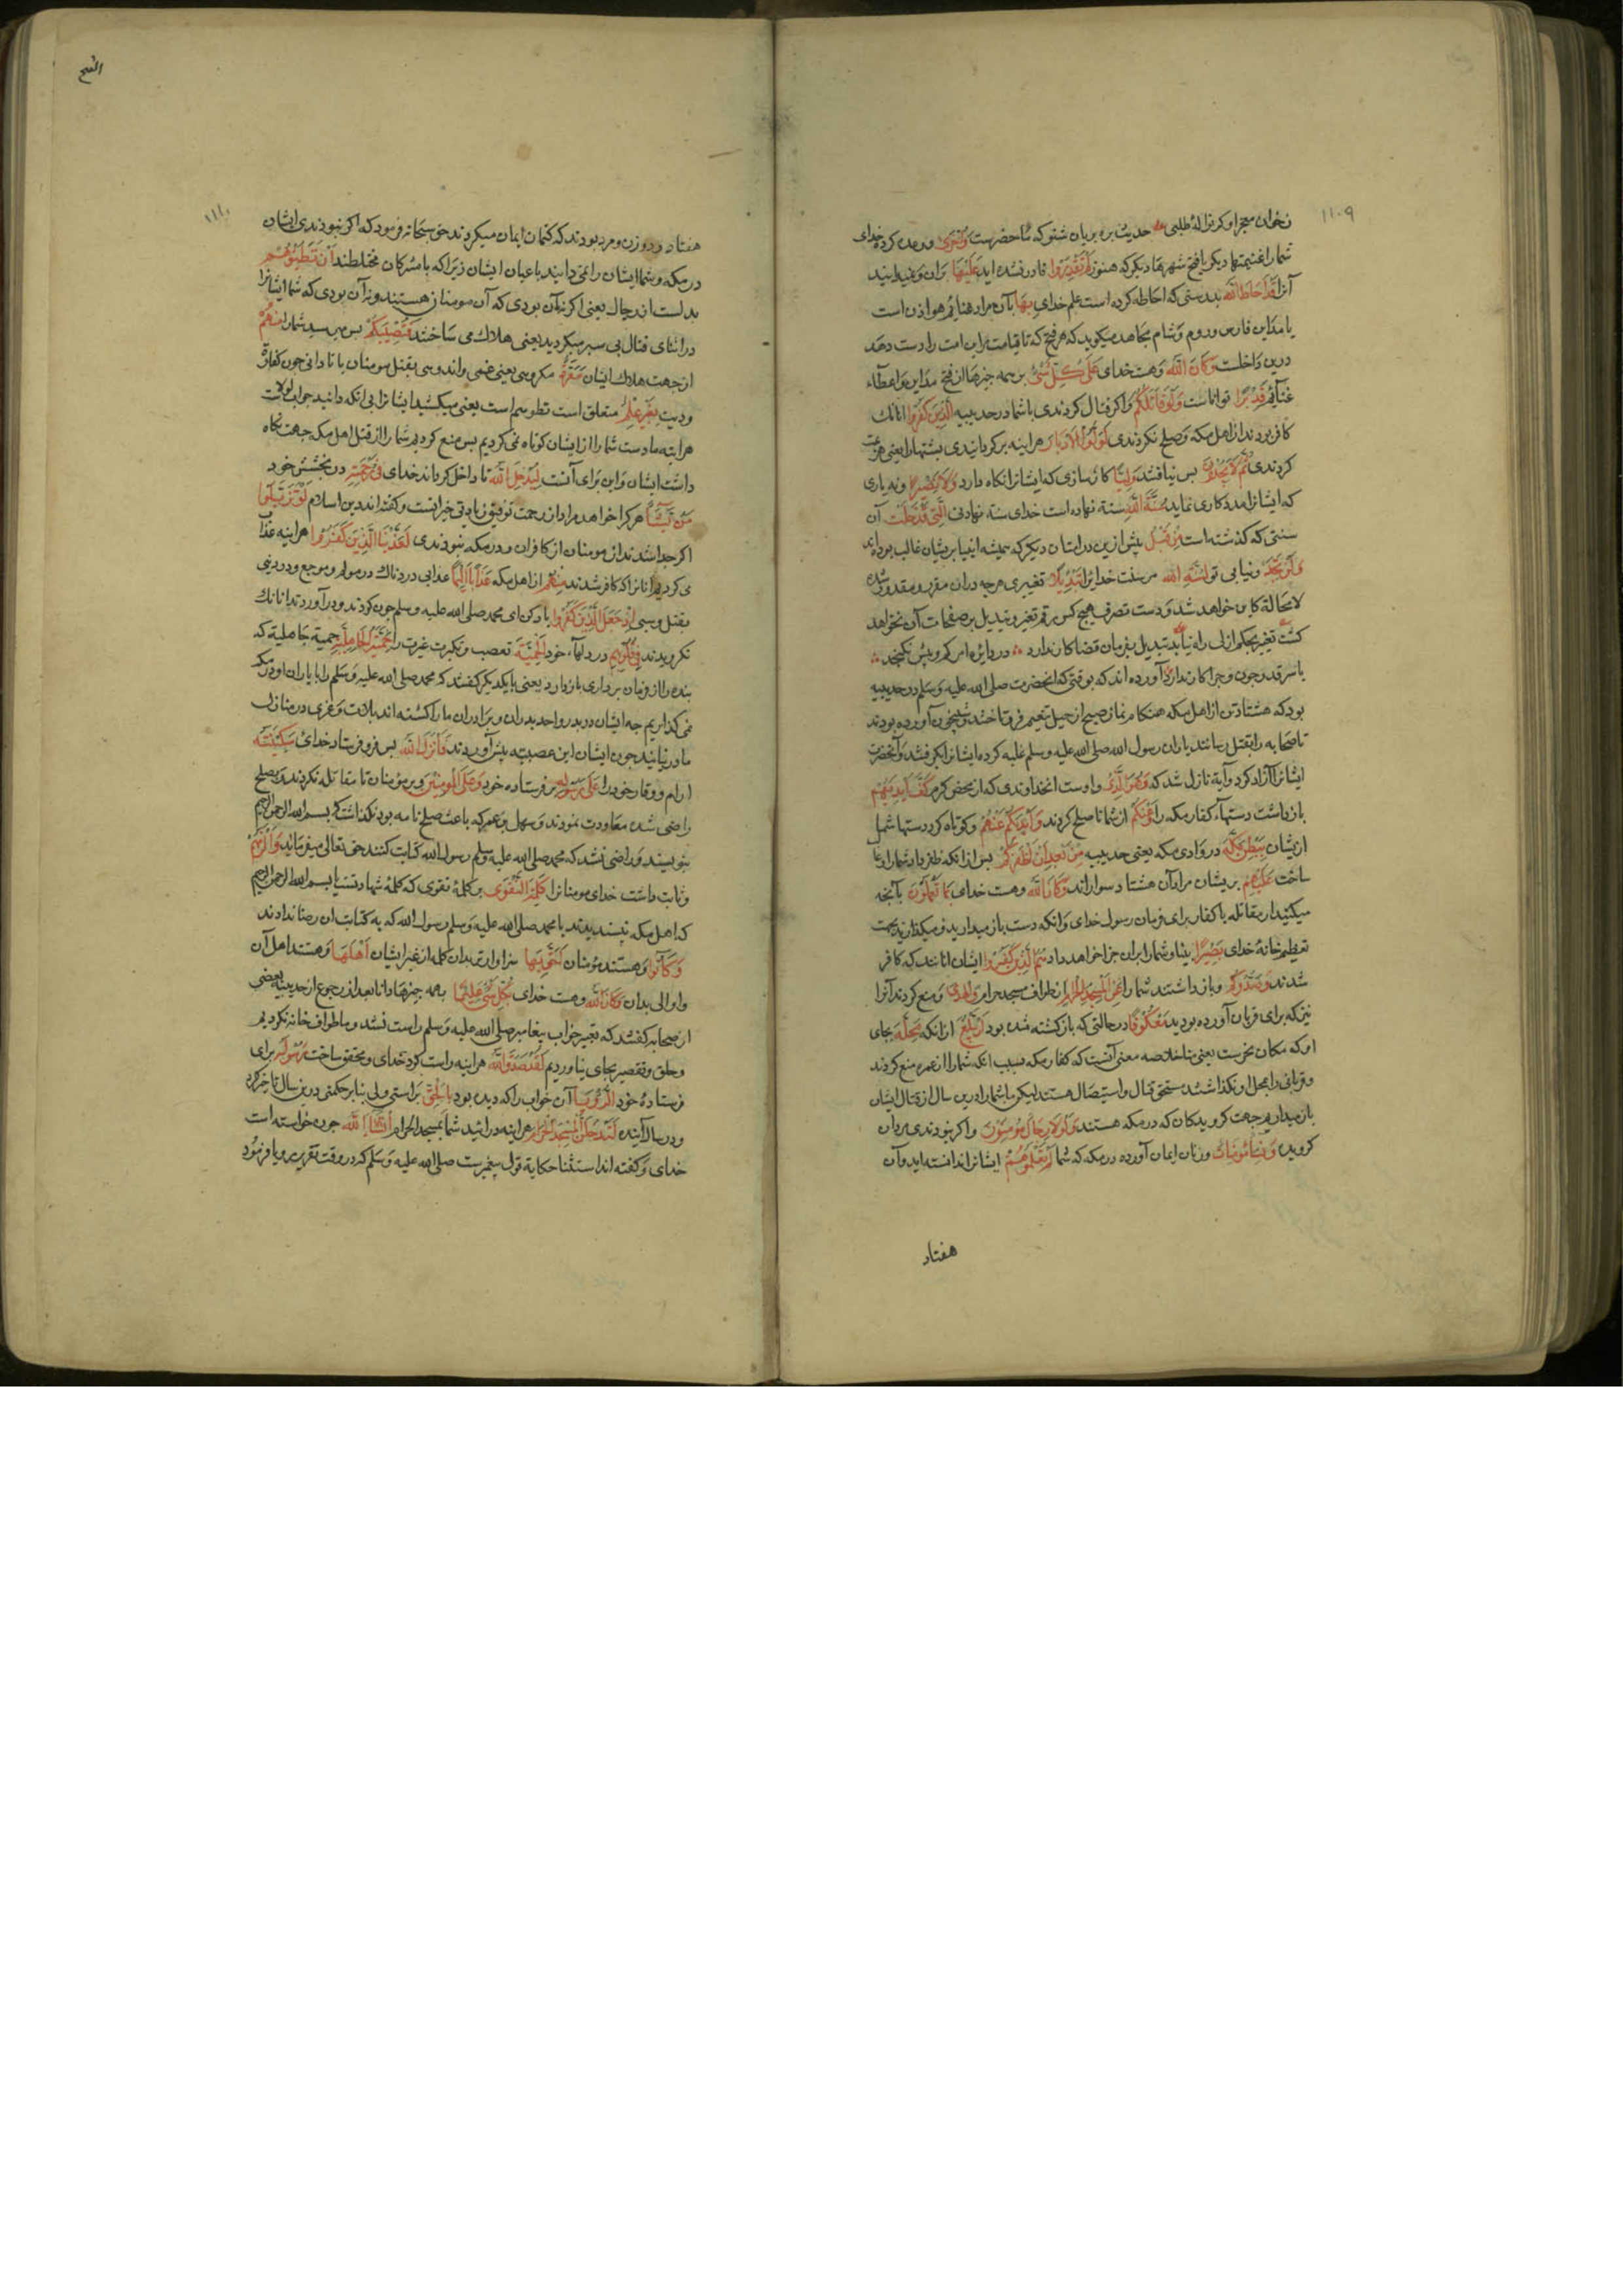 ١١٠٩
نخوان معجز او کر نزالهٔ طلبی حدیث بره بریان شنو که ما حضرست وَاُخْرَى و وعده کرده خدای
شما را غنیمتهاء دیکر یا فتح شهرهاء دیکر که هنوز لَمْ تَقْدِرُوا قادر نشده اید عَلَيْهَا بران و نمیدانید
آنرا قَدْ اَحَاطَ اللّٰهُ بدرستی که احاطه کرده است علم خدای بِهَا بآن مراد غنایم هوازن است
یا مداین فارس و روم و شام مجاهد میکوید که هر فتح که تا قیامت براین امت را دست دهد
درین داخلست وَكَانَ اللّٰهُ و هست خدای عَلَى كُلِّ شَيْءٍ بر همه چیزها از فتح مداین و اعطآء
غنآئم قَدِيْرًا تواناست وَلَوْ قَاتَلَكُمُ و اکر قتال کردندی با شما در حدیبیه الَّذِيْنَ كَفَرُوا آنانک
کافر بودند از اهل مکه و صلح نکردندی لَوَلَّوُا الْاَدْبَارَ هراینه برکردانیدی پشتها را یعنی هزیمت
کردندی ثُمَّ لَا يَجِدُوْنَ پس نیافتند وَلِيًّا کارسازی که ایشانرا نکاه دارد وَلَا نَصِيْرًا و نه یاری
که ایشانرا مددکاری نماید سُنَّةَ اللّٰهِ سنة نهاده است خدای سنة نهادنی الَّتِيْ قَدْ خَلَتْ آن
سنتی که کذشته است مِنْ قَبْلُ پیش ازین در امتان دیکر که همیشه انبیا بریشان غالب بوده اند
وَلَنْ تَجِدَ و نیابی تو لِسُنَّةِ اللّٰهِ مر سنت خدایرا تَبْدِيْلًا تغییری هرچه دران مقرر و مقدور شده
لا محالة کاین خواهد شد و دست تصرف هیچ کس رقم تغیر و تبدیل بر صفحات آن نخواهد
کشت تغیر بحکم ازلی راه نیابد تبدیل بفرمان قضا کار ندارد در دایرهٔ امر کم و بیش نکنجد
با سر قدر چون و چرا کار ندارد آورده اند که بوقتی که آنحضرت صلی الله علیه وسلم در حدیبیه
بود که هشتاد تن از اهل مکه هنکام نماز صبح از جبل تنعیم فرو تاختند و شبیخون آورده بودند
تا صحابه را بقتل رسانند یاران رسول الله صلی الله علیه وسلم غلبه کرده ایشانرا بکرفتند و آنحضرت
ایشانرا آزاد کرد و آیة نازل شد که وَهُوَ الَّذِيْ و اوست آنخداوندی که از محض کرم كَفَّ اَيْدِيَهُمْ
بازداشت دستهآء کفار مکه را عَنْكُمْ از شما تا صلح کردند وَاَيْدِيَكُمْ عَنْهُمْ و کوتاه کرد دستها شما
ازیشان بِبَطْنِ مَكَّةَ در وادی مکه یعنی حدیبیه مِنْ بَعْدِ اَنْ اَظْفَرَكُمْ پس از آنکه ظفر داد شما را و
ساخت عَلَيْهِمْ بریشان مراد آن هشتاد سوارانند وَكَانَ اللّٰهُ و هست خدای بِمَا تَعْمَلُوْنَ بآنچه
میکنید از مقاتله با کفار برای فرمان رسول خدای و آنکه دست باز میدارید و میکذارید بجهت
تعظیم خانهٔ خدای بَصِيْرًا بینا و شما را بران جزا خواهد داد هُمُ الَّذِيْنَ كَفَرُوا ایشان آنانند که کافر
شدند وَصَدُّوْكُمْ و بازداشتند شما را عَنِ الْمَسْجِدِ الْحَرَامِ از طواف مسجد حرام وَالْهَدْيَ و منع کردند آنرا
نیز که برای قربان آورده بودید مَعْكُوْفًا در حالتی که بازکشته شده بود اَنْ يَبْلُغَ از آنکه مَحِلَّهُ بجای
او که مکان نحرست یعنی منا خلاصه معنی آنست که کفار مکه بسبب انکه شما را از عمره منع کردند
و قربانی را بمحل او نکذاشتند مستحق قتال و استیصال هستند لیکن ما شما را درین سال از قتال ایشان
باز میداریم جهت کرویدکان که در مکه هستند وَلَوْلَا رِجَالٌ مُؤْمِنُوْنَ و اکر نبودندی مردان
کرویده وَنِسَاءٌ مُؤْمِنَاتٌ و زنان ایمان آورده در مکه که شما لَمْ تَعْلَمُوْهُمْ ایشانرا ندانسته اید و آن
هفتاد
الفتح
١١١٠
هفتاد و دو زن و مرد بودند که کتمان ایمان میکردند حق سبحانه فرمود که اکر نبودندی ایشان
در مکه و شما ایشان را نمی دانید باعیان ایشان زیرا که با مشرکان مختلطند اَنْ تَطَئُوْهُمْ
بدل است از رجال یعنی اکر نه آن بودی که آن مومنان هستند و نه آن بودی که شما ایشانرا
در اثنای قتال پی سپر میکردید یعنی هلاک می ساختند فَتُصِيْبَكُمْ پس می رسید شما را مِنْهُمْ
از جهت هلاک ایشان مَعَرَّةٌ مکروهی یعنی غمی و اندوهی بقتل مومنان یا تاوانی چون کفارة
و دیت بِغَيْرِ عِلْمٍ متعلق است تطوهم است یعنی میکشید ایشانرا بی آنکه دانید جواب لولا آنست
هراینه ما دست شما را از ایشان کوتاه نمی کردیم پس منع کردیم شما را از قتل اهل مکه جهت نکاه
داشت ایشان و این برای آنست لِيُدْخِلَ اللّٰهُ تا داخل کرداند خدای فِيْ رَحْمَتِهِ در بخشش خود
مَنْ يَّشَآءُ هر کرا خواهد مراد از رحمت توفیق زیادتی خیرانست و کفته اند دین اسلام لَوْ تَزَيَّلُوا
اکر جدا شدند از مومنان از کافران و در مکه نبودندی لَعَذَّبْنَا الَّذِيْنَ كَفَرُوا هراینه عذاب
می کردیم آنانرا که کافر شدند مِنْهُمْ از اهل مکه عَذَابًا اَلِيْمًا عذابی دردناک در مولم و موجع و در دنیی
بقتل و سبی اِذْ جَعَلَ الَّذِيْنَ كَفَرُوا یاد کن ای محمد صلی الله علیه وسلم چون کردند و درآوردند آنانک
نکرویدند فِيْ قُلُوْبِهِمُ در دلهآء خود الْحَمِيَّةَ تعصب و تکبر و غیرت را حَمِيَّةَ الْجَاهِلِيَّةِ حمیة جاهلیة که
بنده را از فرمان برداری باز دارد یعنی با یکدیکر کفتند که محمد صلی الله علیه وسلم را با یاران او در مکه
نمی کذاریم چه ایشان در بدر و احد پدران و برادران ما را کشته اند بلات و عزی در منازل
ما در نیایند چون ایشان این عصبیه پیش آوردند فَاَنْزَلَ اللّٰهُ پس فرو فرستاد خدای سَكِيْنَتَهُ
ارام و وقار خود را عَلَى رَسُوْلِهِ بر فرستاده خود وَعَلَى الْمُؤْمِنِيْنَ و بر مؤمنان تا مقاتله نکردند و بصلح
راضی شده معاودت نمودند و سهل بن عمر که باعث صلح نامه بود نکذاشت که بسم الله الرحمن الرحیم
بنویسند و راضی نشد که محمد صلی الله علیه وسلم رسول الله کتابت کنند حق تعالی میفرماید وَاَلْزَمَهُمْ
و ثابت داشت خدای مومنانرا كَلِمَةَ التَّقْوَى بر کلمهٔ تقوی که کلمهٔ شهادتست یا بسم الله الرحمن الرحیم
که اهل مکه نپسندیدند یا محمد صلی الله علیه وسلم رسول الله که به کتابت ان رضا ندادند
وَكَانُوا و هستند مؤمنان اَحَقَّ بِهَا سزاوارتر بدان کلمه از غیر ایشان اَهْلَهَا و هستند اهل آن
و اولی بدان وَكَانَ اللّٰهُ و هست خدای بِكُلِّ شَيْءٍ عَلِيْمًا بهمه چیزها دانا بعد از رجوع از حدیبیه بعضی
از صحابه کفتند که تعبیر خواب پیغامبر صلی الله علیه وسلم راست نشد و ما طواف خانه نکردیم
و حلق و تقصیر بجای نیاوردیم لَقَدْ صَدَقَ اللّٰهُ هراینه راست کرد خدای و محقق ساخت رَسُوْلَهُ برای
فرستادهٔ خود الرُّوْيَا آن خواب را که دیده بود بِالْحَقِّ براستی ولی بنابر حکمتی درین سال تاخیر کرد
و در سال آینده لَتَدْخُلُنَّ الْمَسْجِدَ الْحَرَامَ هراینه درائید شما بمسجد الحرام اِنْ شَآءَ اللّٰهُ چون خواسته است
خدای و کفته اند استثنا حکایة قول پیغمبرست صلی الله علیه وسلم که در وقت تقریر رویا فرمود